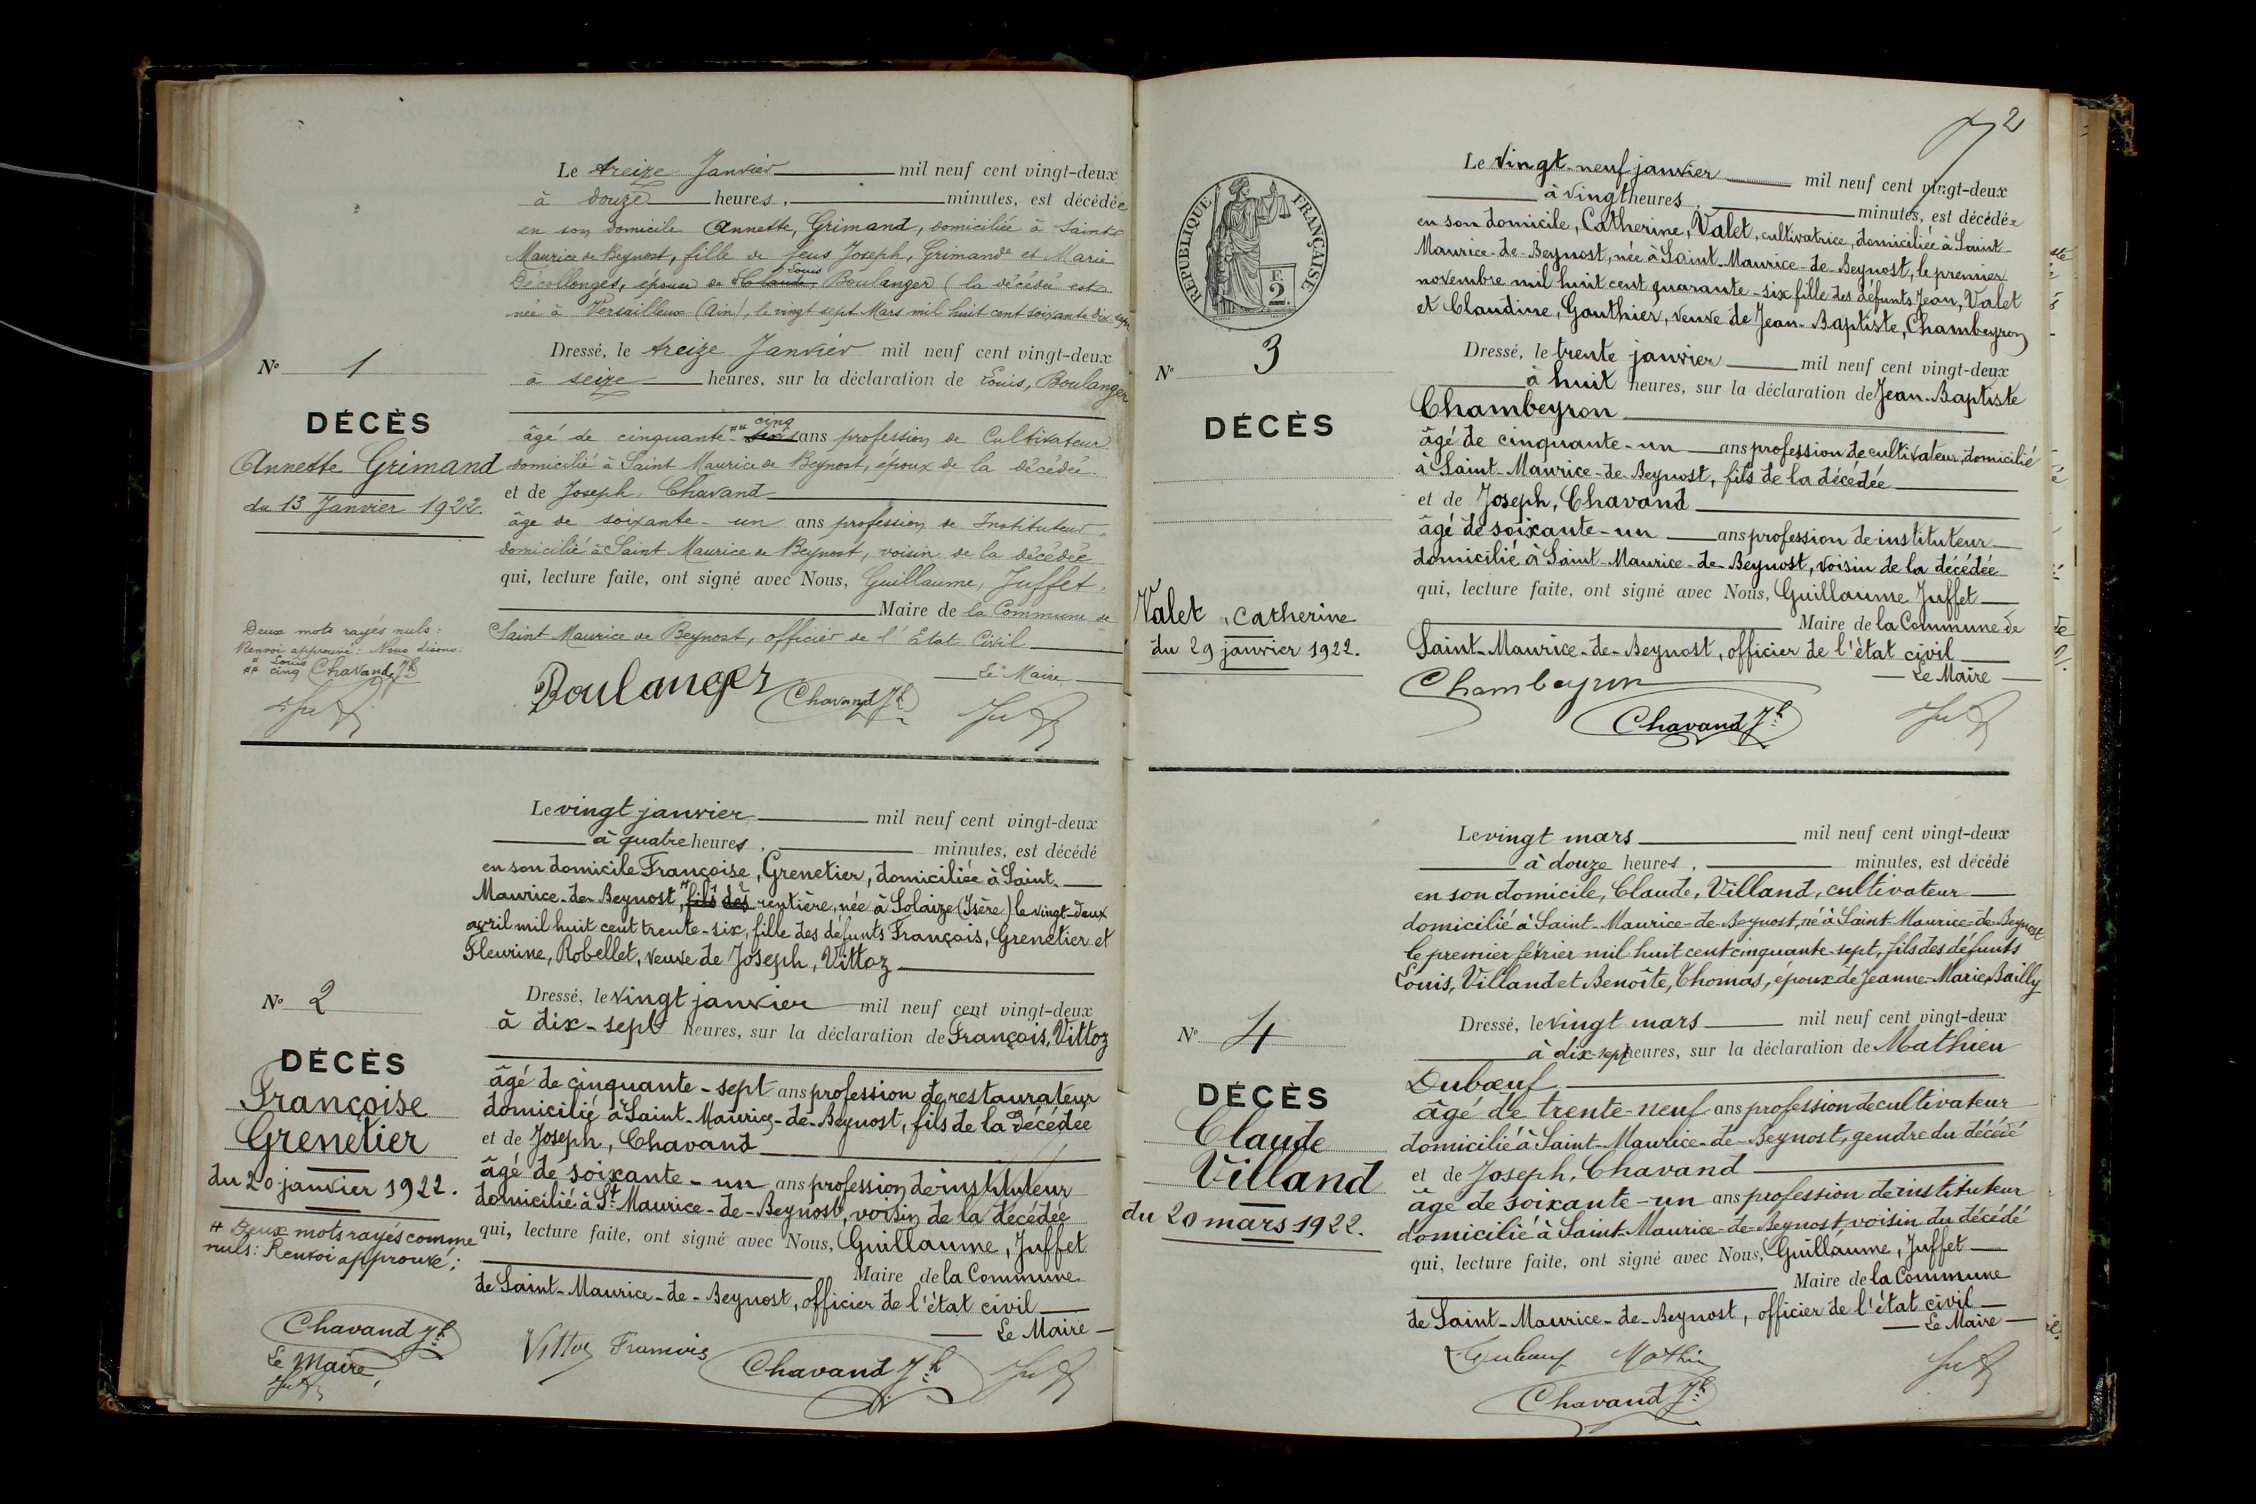 Le treize Janvier mil neuf cent vingt-deux
à douze heures, minutes, est décédée
en son domicile Annette, Grimand, domiciliée à Saint
Maurice de Beynost, fille de feus Joseph, Grimand et Marie
Décollonges, épouse de Claude * Louis Boulanger (la décédée est
née à Versailleux (Ain), le vingt sept Mars mil huit cent soixante dix sept
Dressé, le treize Janvier mil neuf cent vingt-deux
à seize heures, sur la déclaration de Louis, Boulanger
N° 1
DÉCÈS
Annette Grimand
du 13 Janvier 1922.
âgé de cinquante - ** cinq ans profession de Cultivateur
domicilié à Saint Maurice de Beynost, époux de la décédée
et de Joseph, Chavand
âgé de soixante - un ans profession de Instituteur,
domicilié à Saint Maurice de Beynost, voisin de la décédée
qui, lecture faite, ont signé avec Nous, Guillaume, Juffet,
Maire de la Commune de
Saint Maurice de Beynost, officier de l'Etat Civil
Le Maire
Deux mots rayés nuls:
Renvoi approuvé: Nous disons:
* Louis
** cinq Chavand Jh
Boulanger Chavand Jh
Le vingt janvier mil neuf cent vingt-deux
à quatre heures, minutes, est décédé
en son domicile Françoise, Grenetier, domiciliée à Saint-
Maurice-de-Beynost, fils des rentière, née à Solaize (Isère) le vingt-deux
avril mil huit cent trente-six, fille des défunts François, Grenetier et
Fleurine, Robellet, veuve de Joseph, Vittoz
N° 2
DÉCÈS
Françoise
Grenetier
du 20 janvier 1922.
Deux mots rayés comme
nuls: Renvoi approuvé;
Chavand Jh
Le Maire,
Dressé, le vingt janvier mil neuf cent vingt-deux
à dix-sept heures, sur la déclaration de François, Vittoz
âgé de cinquante-sept ans profession de restaurateur
domicilié à Saint-Maurice-de-Beynost, fils de la décédée
et de Joseph, Chavand
âgé de soixante-un ans profession de instituteur
domicilié à St Maurice-de-Beynost, voisin de la décédée
qui, lecture faite, ont signé avec Nous, Guillaume, Juffet
Maire de la Commune
de Saint-Maurice-de-Beynost, officier de l'état civil
Le Maire
Vittoz François Chavand Jh
2
RÉPUBLIQUE FRANÇAISE
F.
2
Le vingt-neuf janvier mil neuf cent vingt-deux
à vingt heures, minutes, est décédée
en son domicile, Catherine, Valet, cultivatrice, domiciliée à Saint-
Maurice-de-Beynost, née à Saint-Maurice-de-Beynost, le premier
novembre mil huit cent quarante-six fille des défunts Jean, Valet
et Claudine, Gauthier, veuve de Jean-Baptiste, Chambeyron
N° 3
DÉCÈS
Valet, Catherine
du 29 janvier 1922.
Dressé, le trente janvier mil neuf cent vingt-deux
à huit heures, sur la déclaration de Jean-Baptiste
Chambeyron
âgé de cinquante-un ans profession de cultivateur, domicilié
à Saint-Maurice-de-Beynost, fils de la décédée
et de Joseph, Chavand
âgé de soixante-un ans profession de instituteur
domicilié à Saint-Maurice-de-Beynost, voisin de la décédée
qui, lecture faite, ont signé avec Nous, Guillaume Juffet
Maire de la Commune de
Saint-Maurice-de-Beynost, officier de l'état civil
Le Maire
Chambeyron
Chavand Jh
Le vingt mars mil neuf cent vingt-deux
à douze heures, minutes, est décédé
en son domicile, Claude, Villand, cultivateur
domicilié à Saint-Maurice-de-Beynost, né à Saint-Maurice-de-Beynost
le premier février mil huit cent cinquante-sept, fils des défunts
Louis, Villand et Benoîte, Thomas, époux de Jeanne-Marie, Bailly
N° 4
DÉCÈS
Claude
Villand
du 20 mars 1922.
Dressé, le vingt mars mil neuf cent vingt-deux
à dix-sept heures, sur la déclaration de Mathieu
Dubœuf
âgé de trente-neuf ans profession de cultivateur
domicilié à Saint-Maurice-de-Beynost, gendre du décédé
et de Joseph, Chavand
âgé de soixante-un ans profession de instituteur
domicilié à Saint-Maurice-de-Beynost, voisin du décédé
qui, lecture faite, ont signé avec Nous, Guillaume, Juffet
Maire de la Commune
de Saint-Maurice-de-Beynost, officier de l'état civil
Le Maire
Dubœuf Mathieu
Chavand Jh